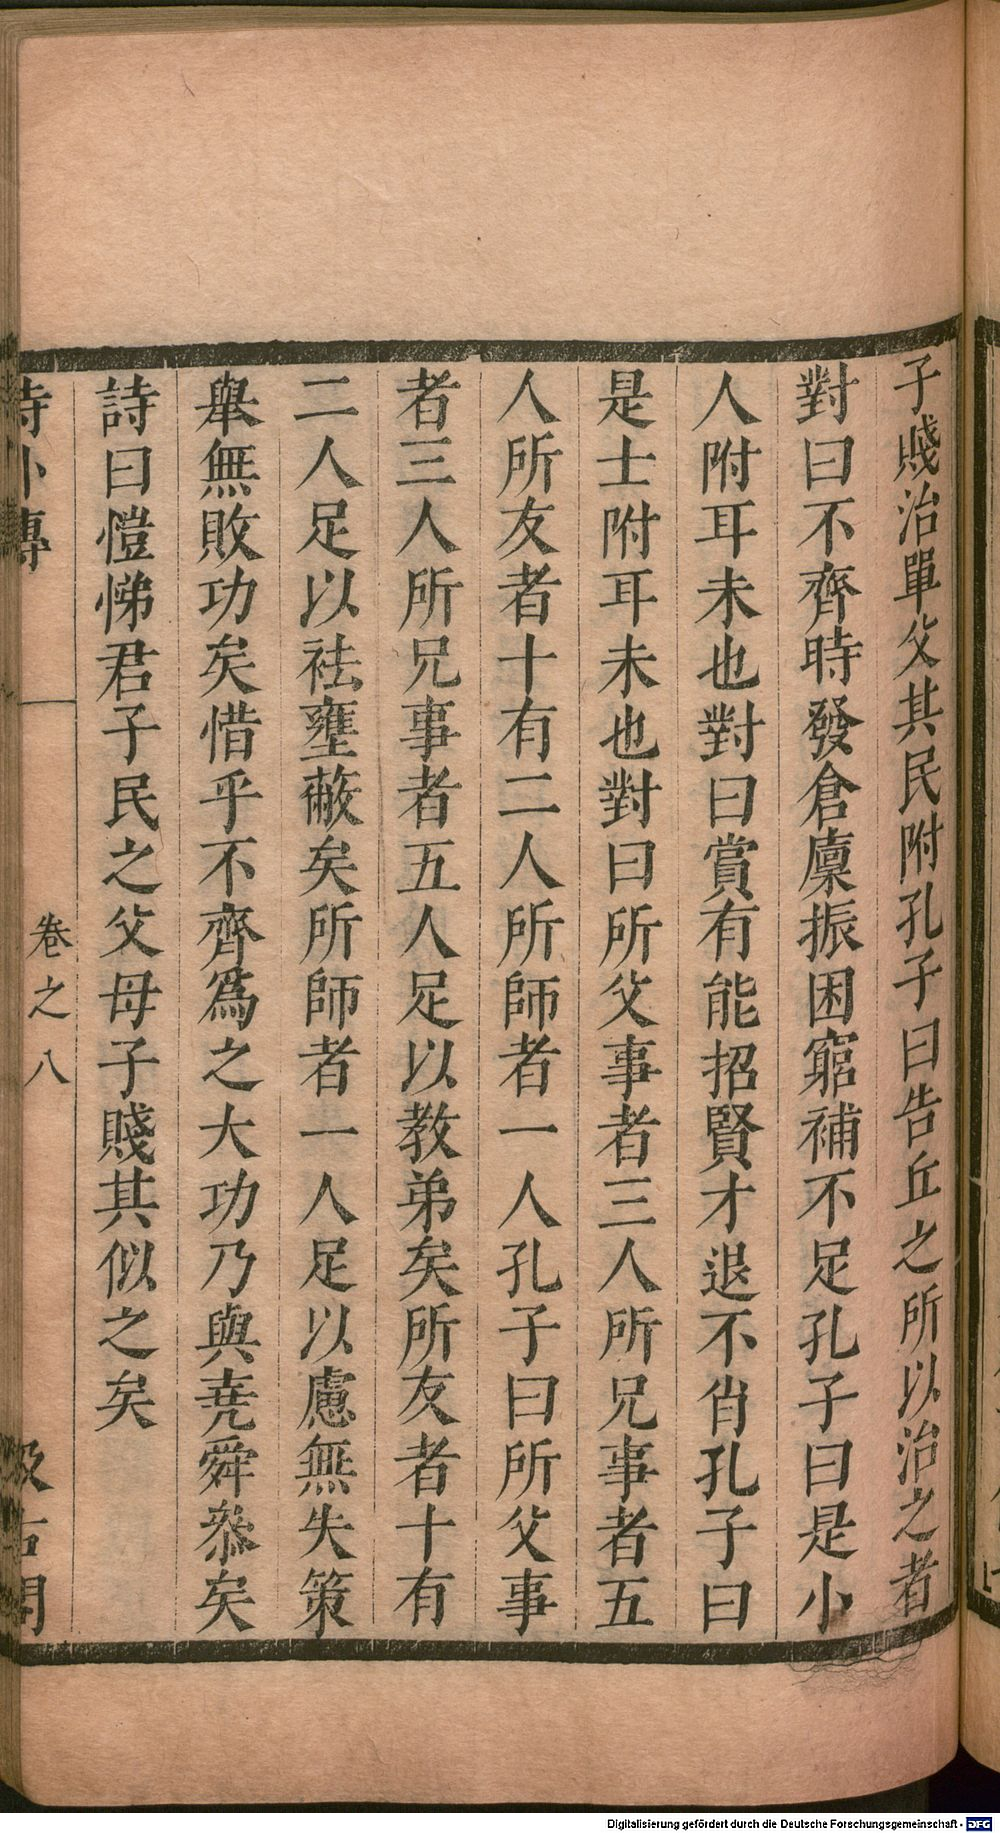 子賤治單父其民附孔子曰告丘之所以治之者
對曰不齊時發倉廩振困窮補不足孔子曰是小
人附耳未也對曰賞有能招賢才退不肖孔子曰
是士附耳未也對曰所父事者三人所兄事者五
人所友者十有二人所師者一人孔子曰所父事
者三人所兄事者五人足以教弟矣所友者十有
二人足以袪壅蔽矣所師者一人足以慮無失策
舉無敗功矣惜乎不齊爲之大功乃與堯舜叅矣
詩曰愷悌君子民之父母子賤其似之矣
詩外傳 卷之八 汲古閣
Digitalisierung gefördert durch die Deutsche Forschungsgemeinschaft - DFG